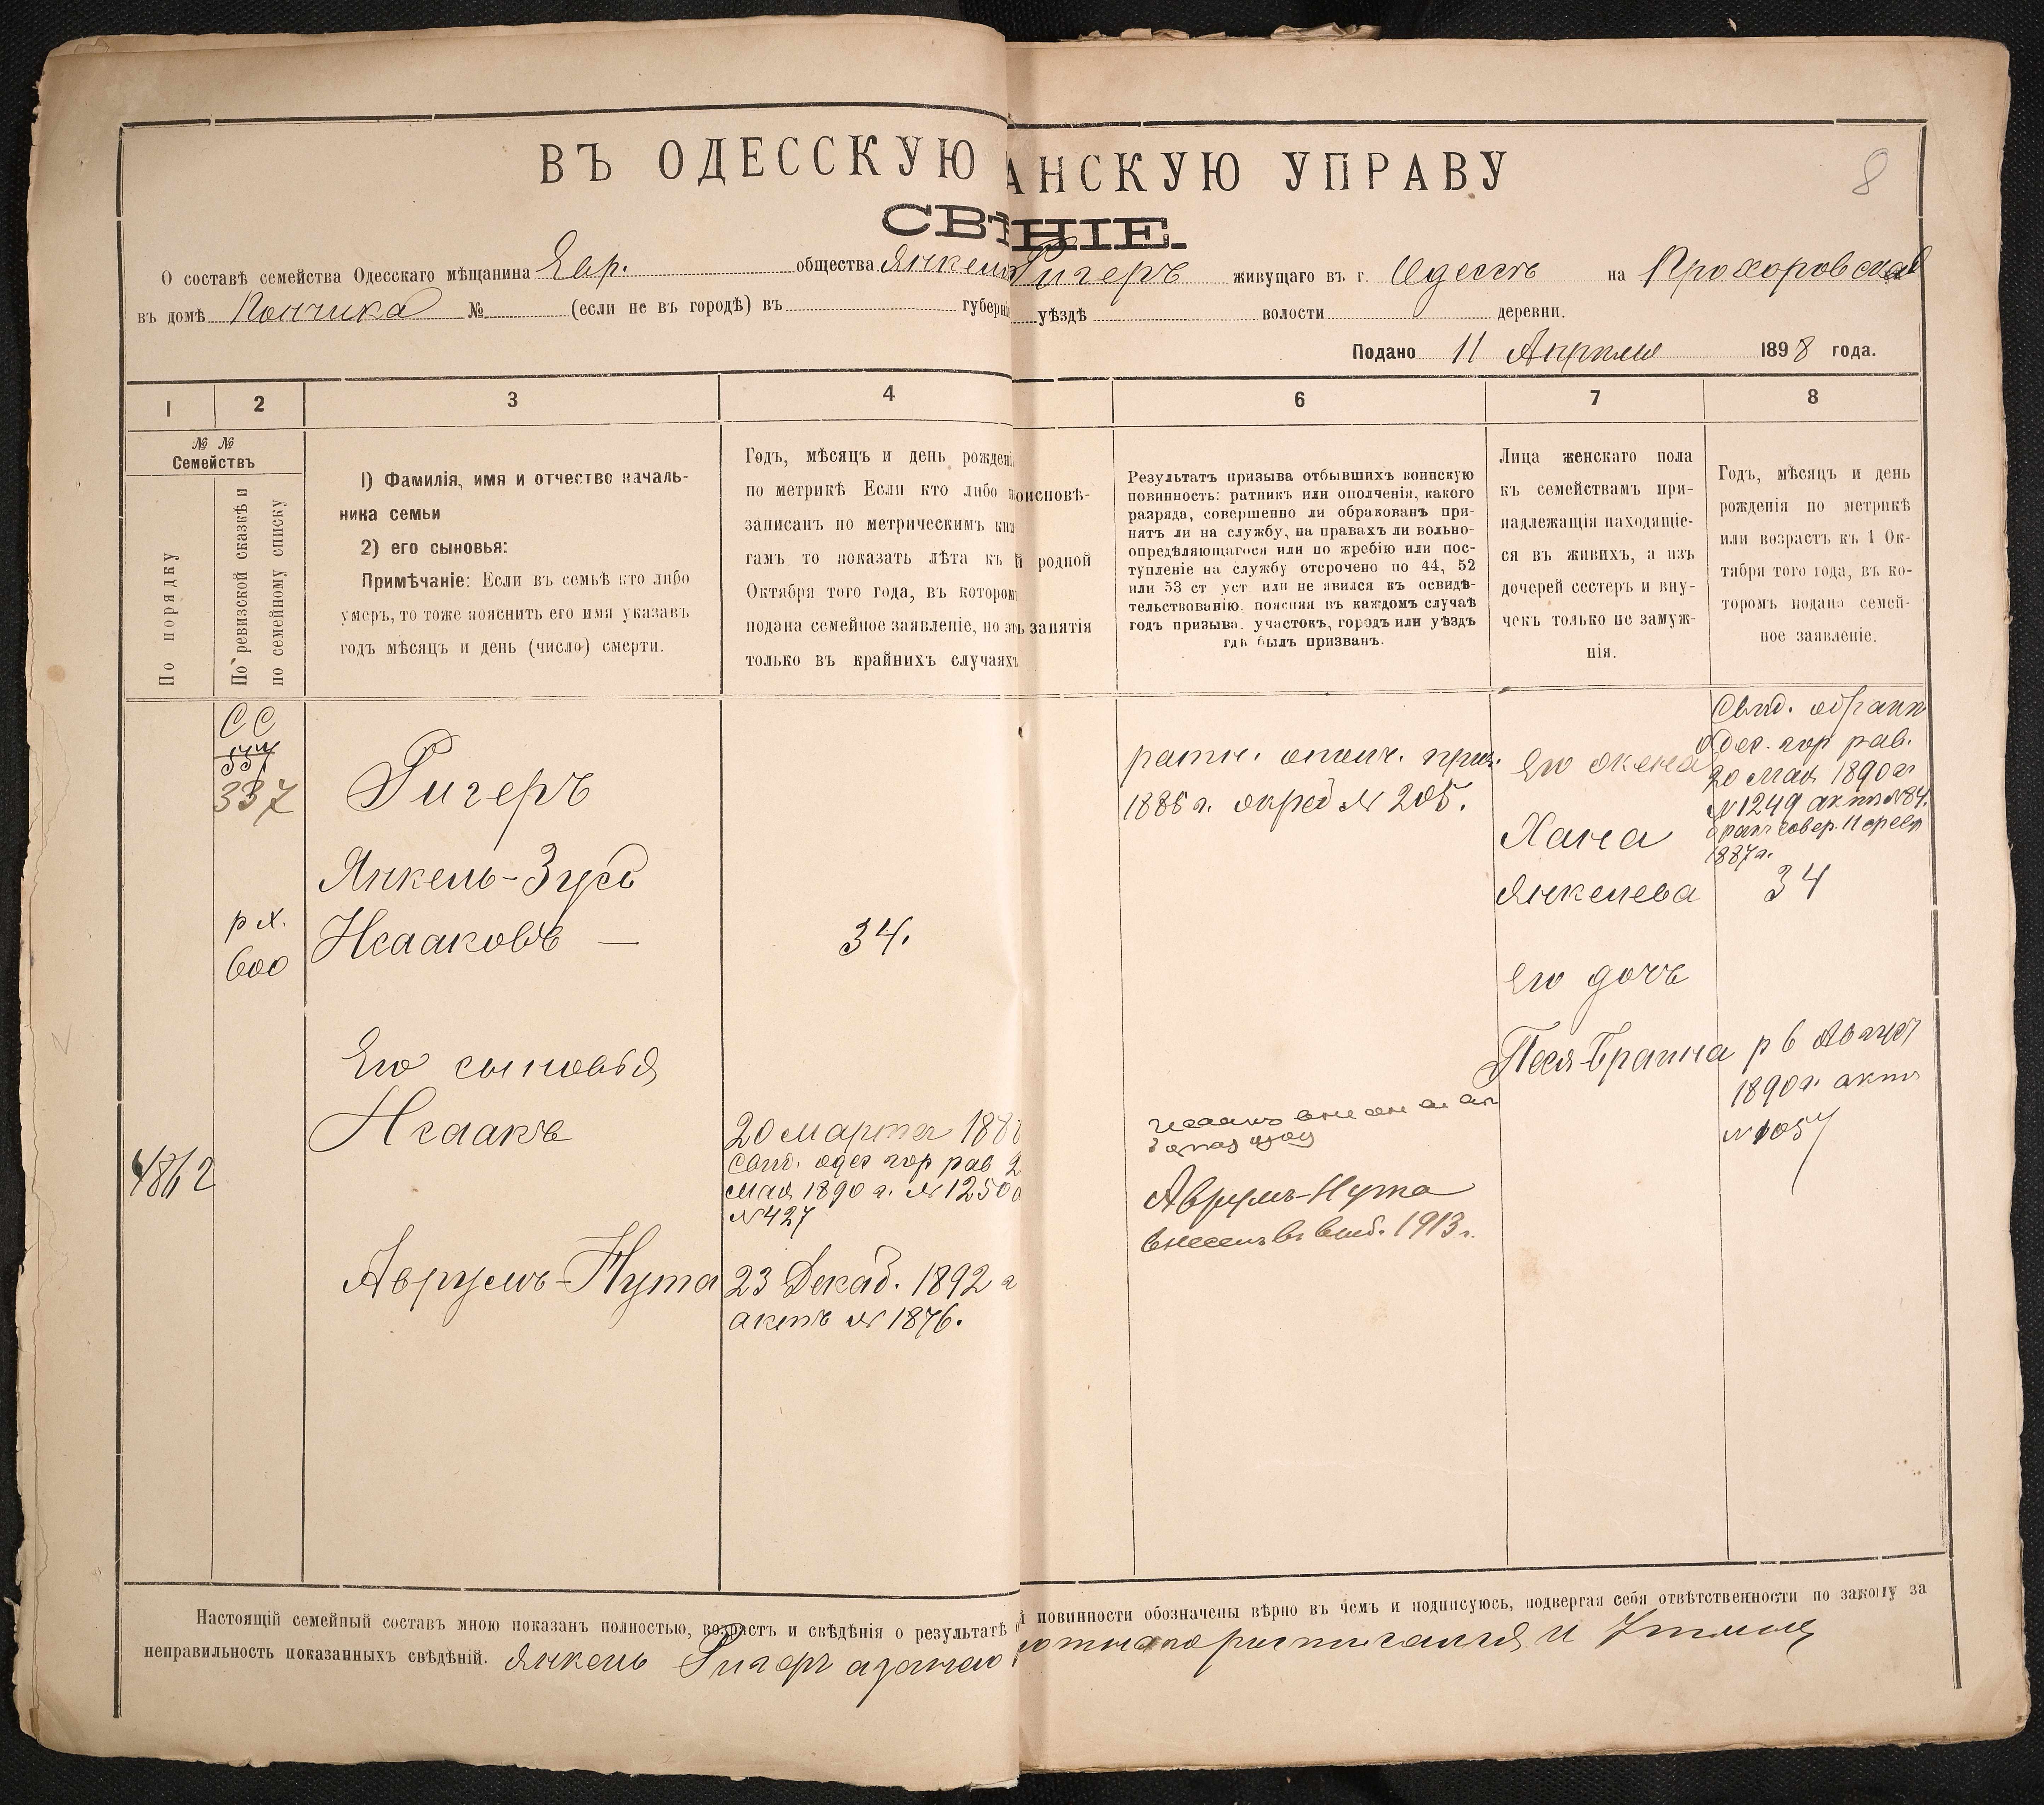 ВЪ ОДЕССКУЮ АНСКУЮ УПРАВУ
8
СВѢ НІЕ.
О составѣ семейства Одесскаго мѣщанина Евр. общества Янкель Ригеръ живущаго въ г. Одессѣ на Прохоровской
въ домѣ Кончика № (если не въ городѣ) въ губерні уѣздѣ волости деревни.
Подано 11 Апрѣля 1898 года.
1 2 3 4 6 7 8
№ № Семействъ
По порядку
По ревизской сказкѣ и
по семейному списку
1) Фамилія, имя и отчество началь-
ника семьи
2) его сыновья:
Примѣчаніе: Если въ семьѣ кто либо
умеръ, то тоже пояснить его имя указавъ
годъ мѣсяцъ и день (число) смерти.
Годъ, мѣсяцъ и день рожденія
по метрикѣ Если кто либо н
записанъ по метрическимъ кни
гамъ то показать лѣта къ
Октября того года, въ котором
подана семейное заявленіе, но эт
только въ крайнихъ случаяхъ
оисповѣ-
й родной
ь занятія
Результатъ призыва отбывшихъ воинскую
повинность: ратникъ или ополченія, какого
разряда, совершенно ли обракованъ при-
нятъ ли на службу, на правахъ ли вольно-
опредѣляющагося или по жребію или пос-
тупленіе на службу отсрочено по 44, 52
или 53 ст уст или не явился къ освидѣ-
тельствованію, поясняя въ каждомъ случаѣ
годъ призыва, участокъ, городъ или уѣздъ
гдѣ былъ призванъ.
Лица женскаго пола
къ семействамъ при-
надлежащія находящіе-
ся въ живихъ, а изъ
дочерей сестеръ и вну-
чекъ только не замуж-
нія.
Годъ, мѣсяцъ и день
рожденія по метрикѣ
или возрастъ къ 1 Ок-
тября того года, въ ко-
торомъ подано семей-
ное заявленіе.
СС
557
337
Ригеръ
Янкель-Зусь
р х.
600
Исааковъ —
34.
Его сыновья
Исаакъ
20 Марта 188
Свид. одес гор рав 2
Мая 1890 г. № 1250 а
№ 427
4862
Аврумъ-Нута
23 Декаб. 1892 г
актъ № 1876.
ратн. ополч. приз.
1886 г. окред № 205.
Исаакъ
Аврумъ-Нута
внесенъ въ 1913 г.
Его жена
Хана
Янкелева
Его дочь
Песя-Браина
Свид. о бракѣ
Одес. гор рав.
20 Мая 1890 г
№ 1249 актъ № 84.
бракъ совер. 11 февр
1887 г.
34
р 6 Август
1890 г. актъ
№ 1057
Настоящій семейный составъ мною показанъ полностью, возрастъ и свѣдѣнія о результатѣ о й повинности обозначены вѣрно въ чемъ и подписуюсь, подвергая себя отвѣтственности по закону за
неправильность показанныхъ свѣдѣній. Янкель Ригеръ